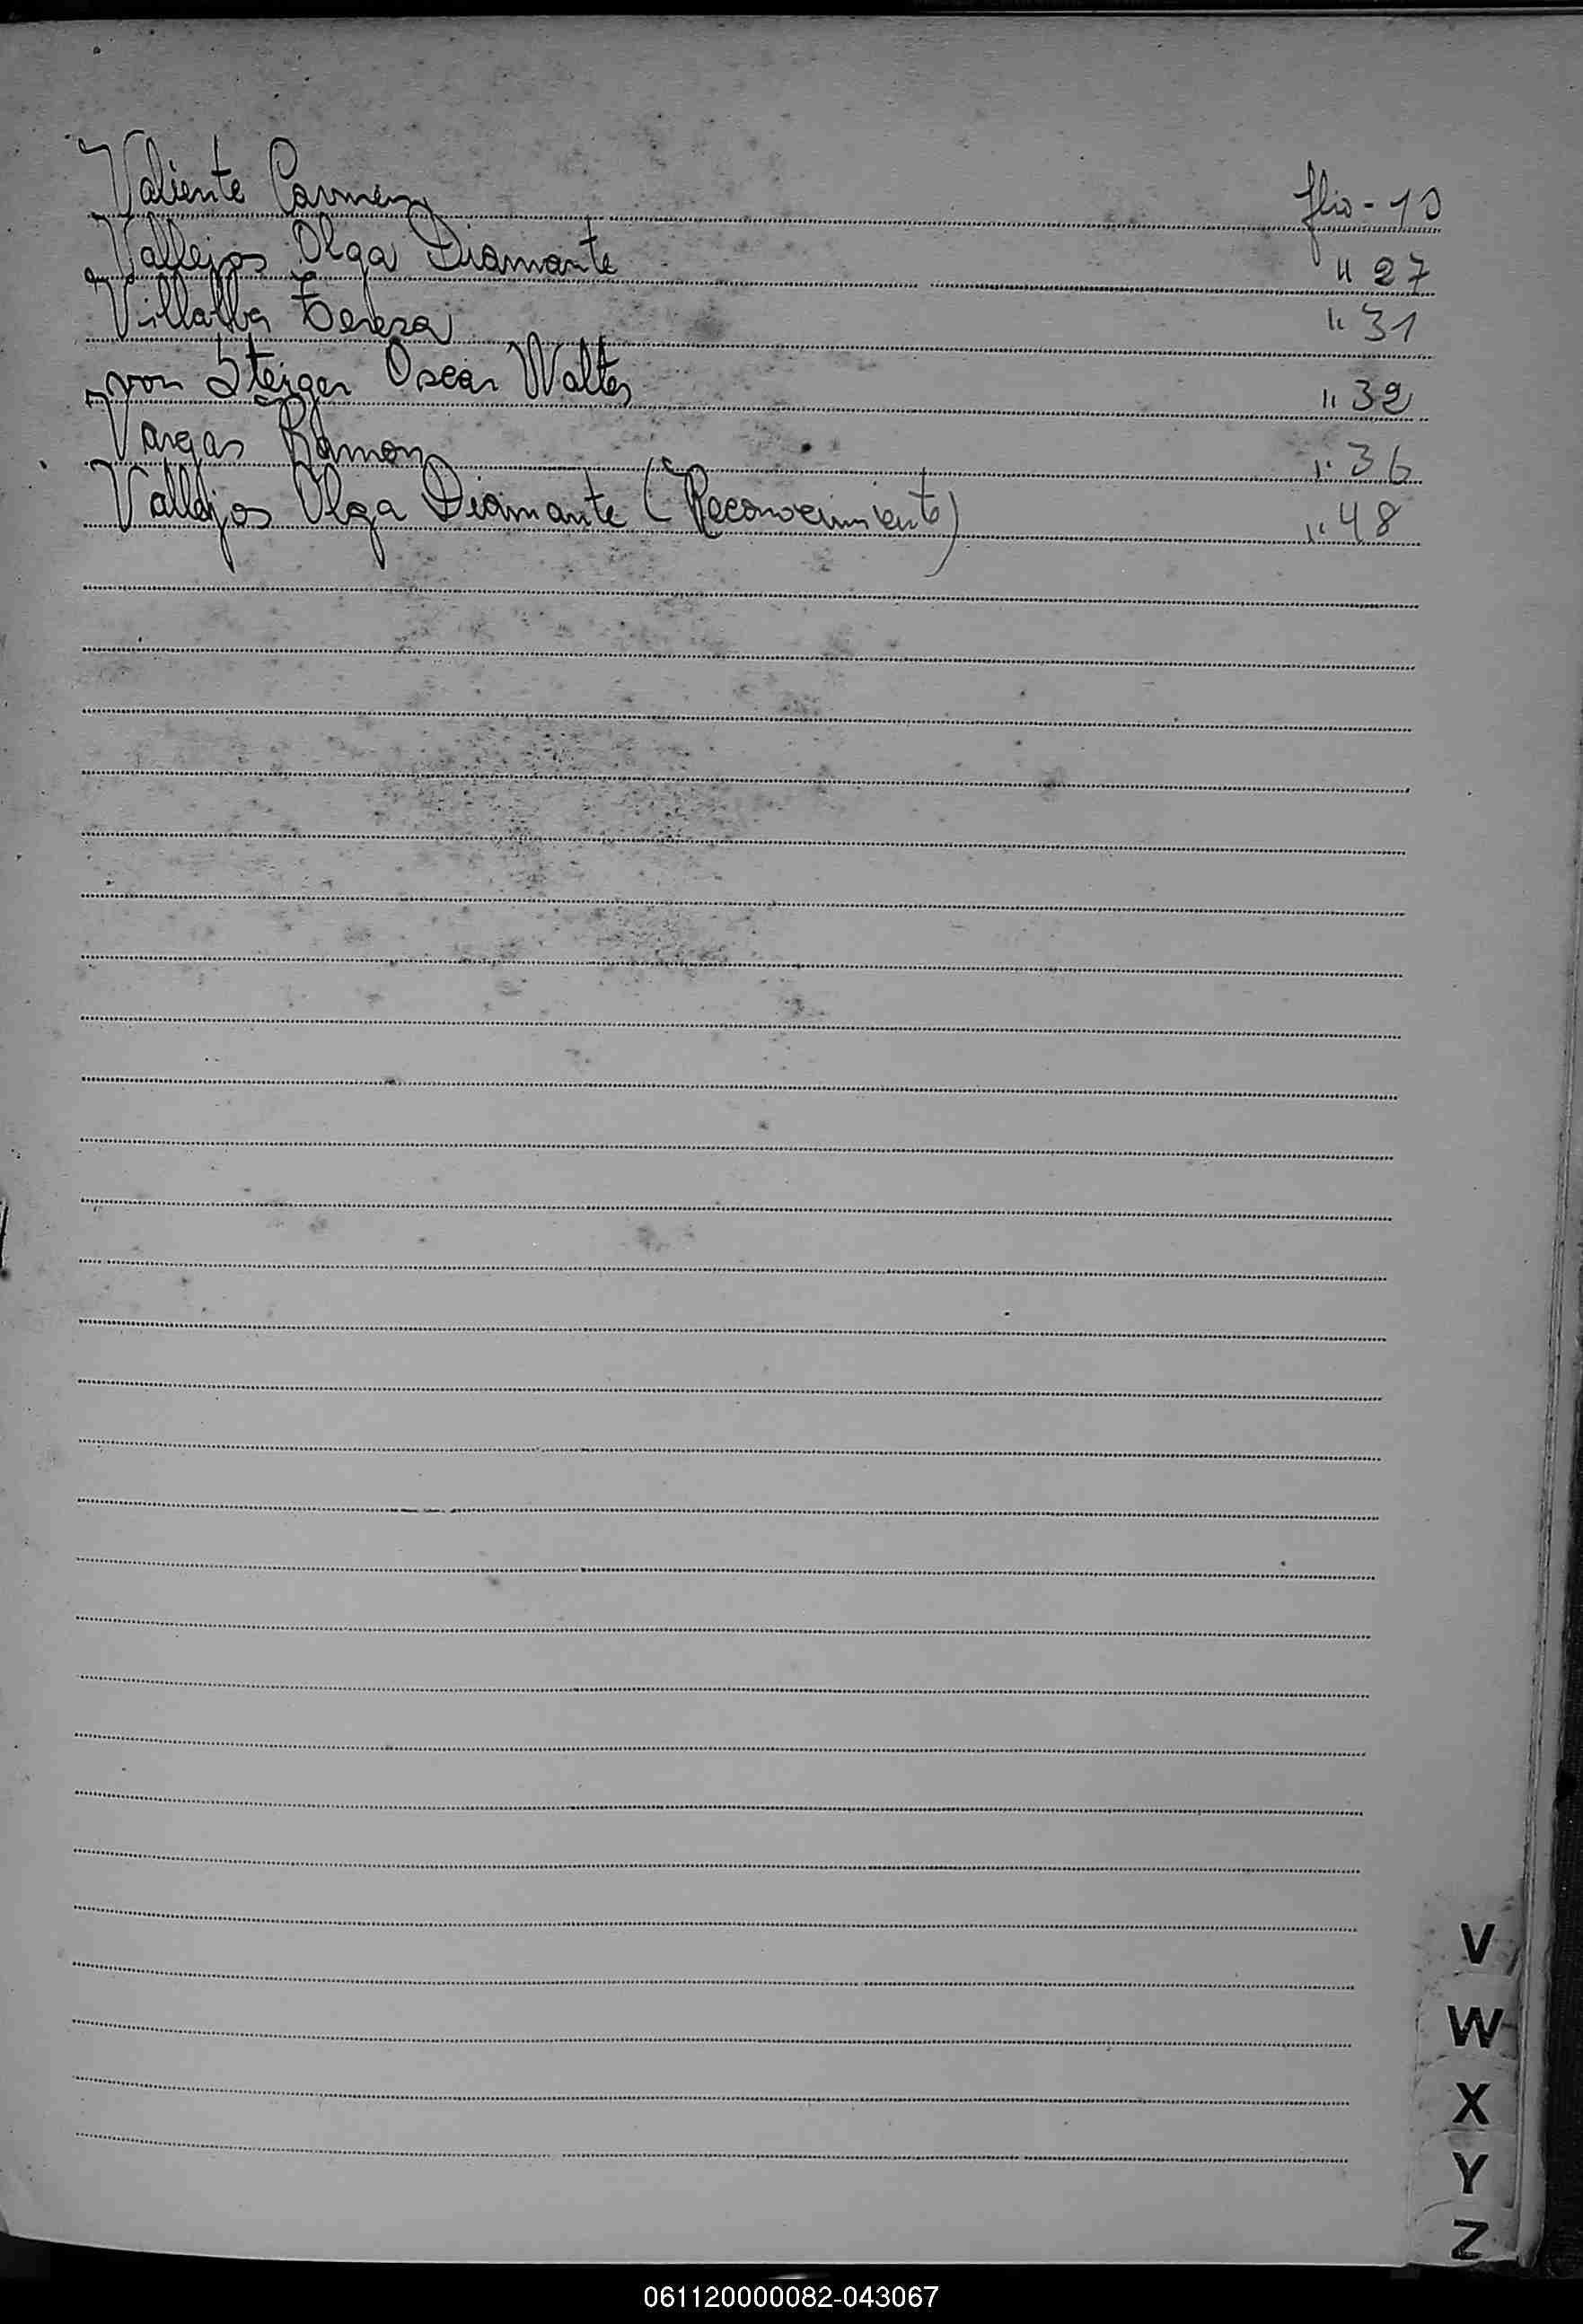 Valiente Carmen flio - 10
Vallejos Olga Diamante " 27
Villalba Tereza " 31
von Steiger Oscar Walter " 32
Vargas Ramon " 36
Vallejos Olga Diamante (Reconocimiento) " 48
V
W
X
Y
Z
061120000082-043067